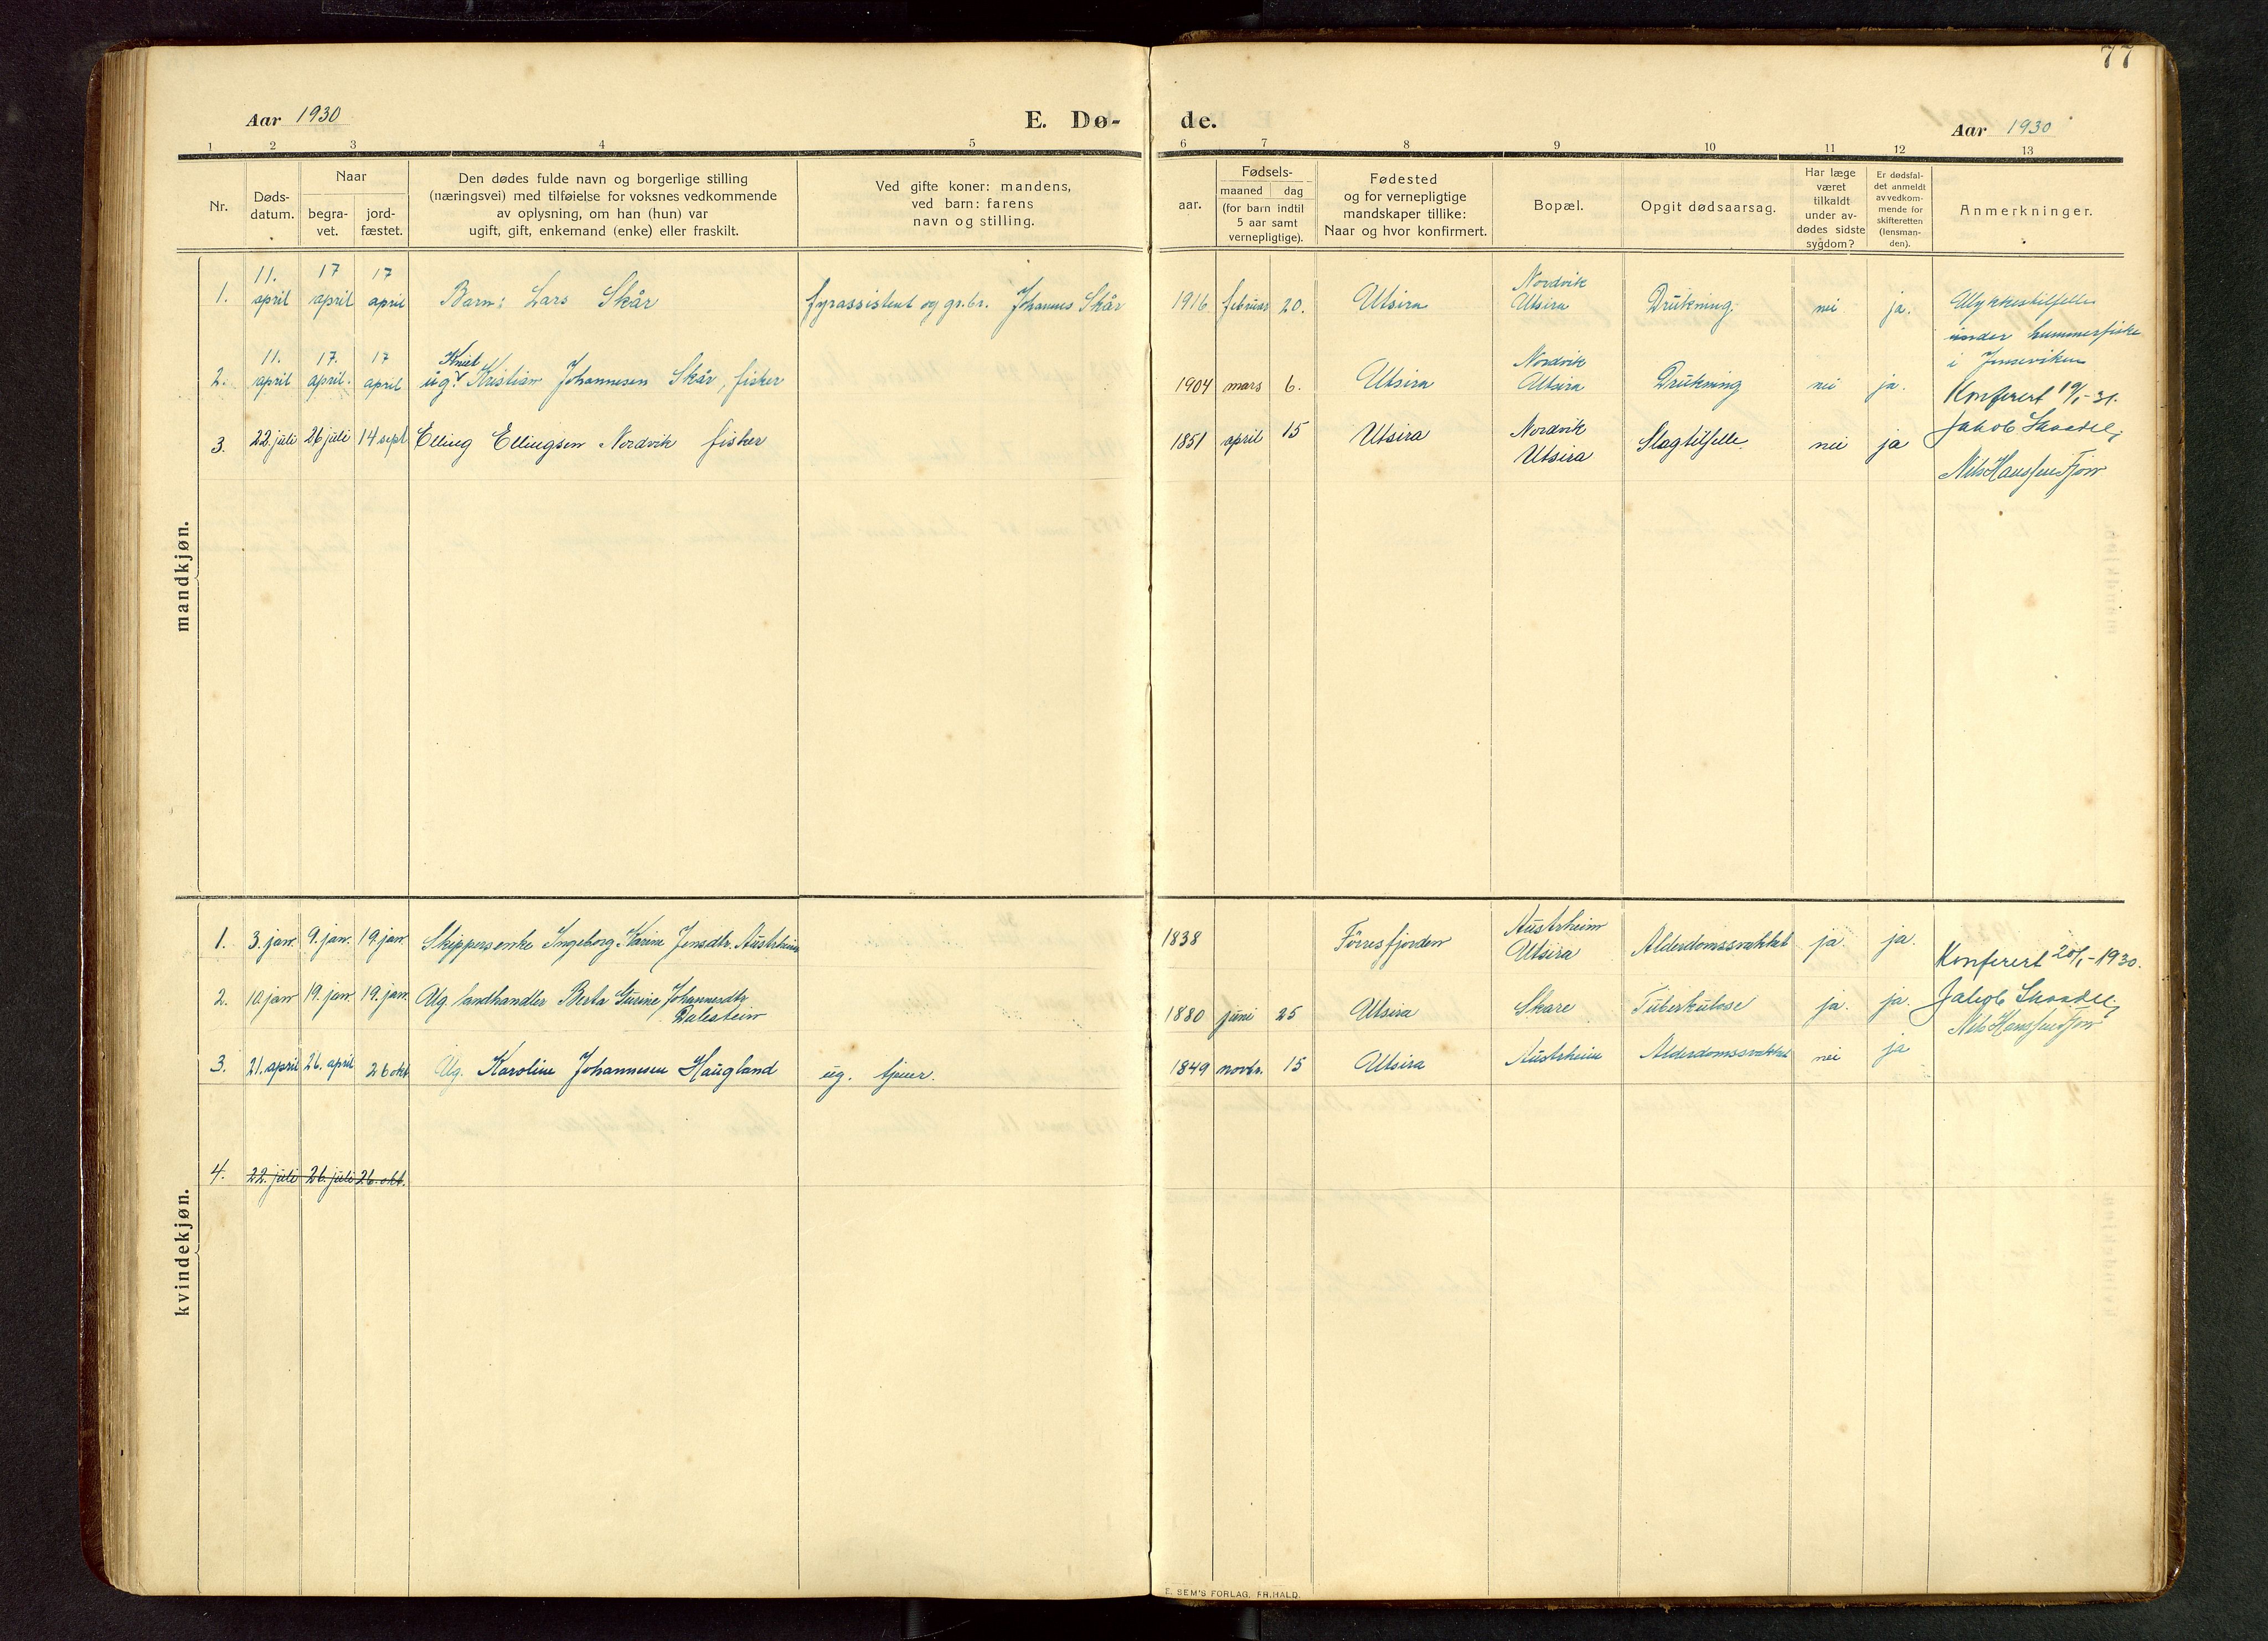 77
Aar 1930
E. Dø-
de.
Aar 1930
1 2 3 4 5 6 7 8 9 10 11 12 13
Nr.
Døds-
datum.
Naar
begra-
vet.
jord-
fæstet.
Den dødes fulde navn og borgerlige stilling
(næringsvei) med tilføielse for voksnes vedkommende
av oplysning, om han (hun) var
ugift, gift, enkemand (enke) eller fraskilt.
Ved gifte koner: mandens,
ved barn: farens
navn og stilling.
aar.
Fødsels-
maaned dag
(for barn indtil
5 aar samt
vernepligtige).
Fødested
og for vernepligtige
mandskaper tillike:
Naar og hvor konfirmert.
Bopæl.
Opgit dødsaarsag.
Har læge
været
tilkaldt
under av-
dødes sidste
sygdom?
Er dødsfal-
det anmeldt
av vedkom-
mende for
skifteretten
(lensman-
den).
Anmerkninger.
mandkjøn.
11. 17 17 Nordvik
1. april april april Barn: Lars Skår fyrassistent og gr.br. Johannes Skår 1916 februar 20. Utsira Utsira Drukning. nei ja. Ulykkestilfelle
under hummerfiske
i Jenseviken
11. 17. 17 Nordvik
2. april april. april ug. Kristian Johannesen Skår, fisker 1904 mars 6. Utsira Utsira Drukning nei ja.
Konferert 19/1-31.
3. 22. juli 26 juli 14 sept Elling Ellingsen Nordvik fisker 1851 april 15 Utsira Nordvik
Utsira Slagtilfelle. nei ja
Jakob
Nils Hanssen
kvindekjøn.
1. 3. jan. 9. jan. 19. jan. Skippersenke Ingeborg Karine Jensdtr. Austrheim 1838 Førresfjorden Austrheim
Utsira Alderdomssvakhet ja. ja.
Konferert 20/1-1930.
2. 10. jan 19. jan 19. jan. Ug. landhandler Berta Gurine Johannesdtr
Dalestein 1880 juni 25 Utsira Skare Tuberkulose ja. ja.
Jakob
Nils Hanssen
3. 21. april 26. april 26 okt Ug. Karoline Johannesen Haugland ug. tjener. 1849 novbr. 15 Utsira Austrheim Alderdomssvakhet nei ja
4. 22. juli 26. juli 26. okt.
E. SEM'S FORLAG, FR.HALD.